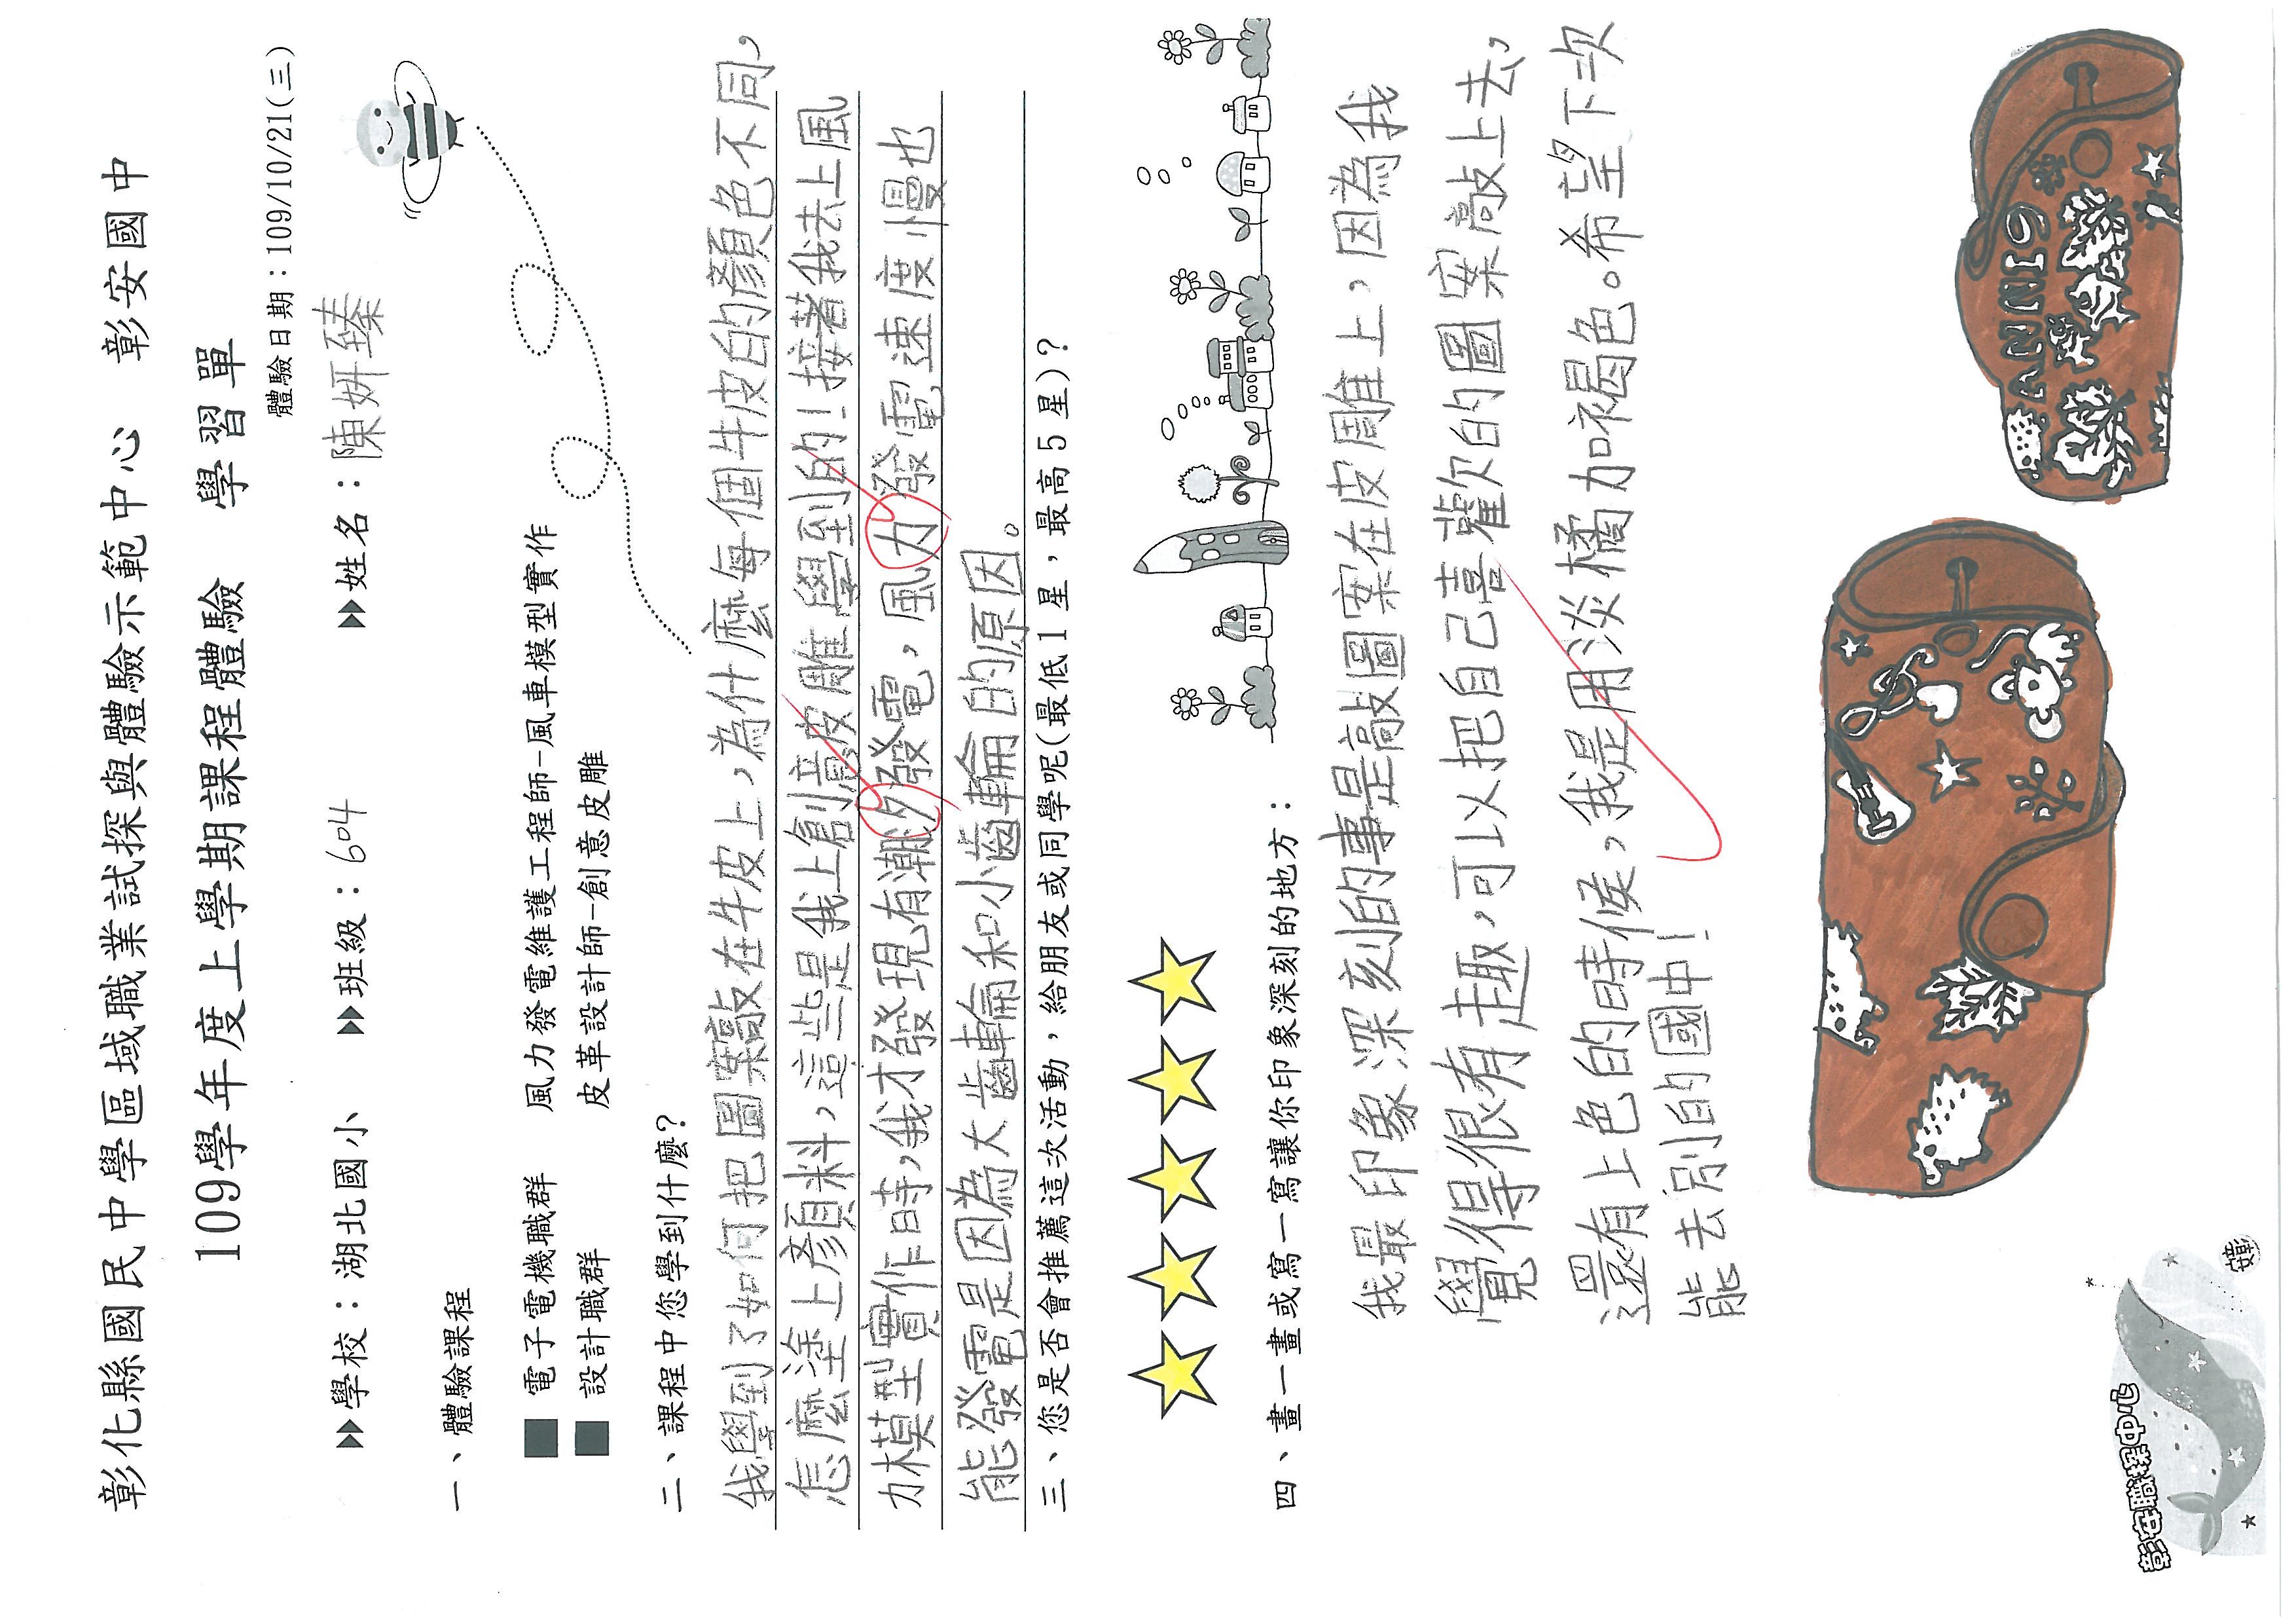 彰化縣國民中學區域職業試探與體驗示範中心 彰安國中
109學年度上學期課程體驗 學習單
體驗日期：109/10/21(三)
學校：湖北國小 班級：604 姓名：陳妍臻
一、體驗課程
電子電機職群 風力發電維護工程師-風車模型實作
設計職群 皮革設計師-創意皮雕
二、課程中您學到什麼?
我學到了如何把圖案敲在牛皮上,為什麼每個牛皮的顏色不同,
怎麼塗上顏料,這些是我上創意皮雕學到的!接著我去上風
力模型實作時,我才發現有潮汐發電,風力發電速度慢也
能發電是因為大齒輪和小齒輪的原因。
三、您是否會推薦這次活動，給朋友或同學呢(最低1星，最高5星)?
四、畫一畫或寫一寫讓你印象深刻的地方：
我最印象深刻的事是敲圖案在皮雕上,因為我
覺得很有趣,可以把自己喜歡的圖案敲上去,
還有上色的時候,我是用淡橘加褐色。希望下次
能去別的國中!
ANNIS
彰安職探中心
彰安